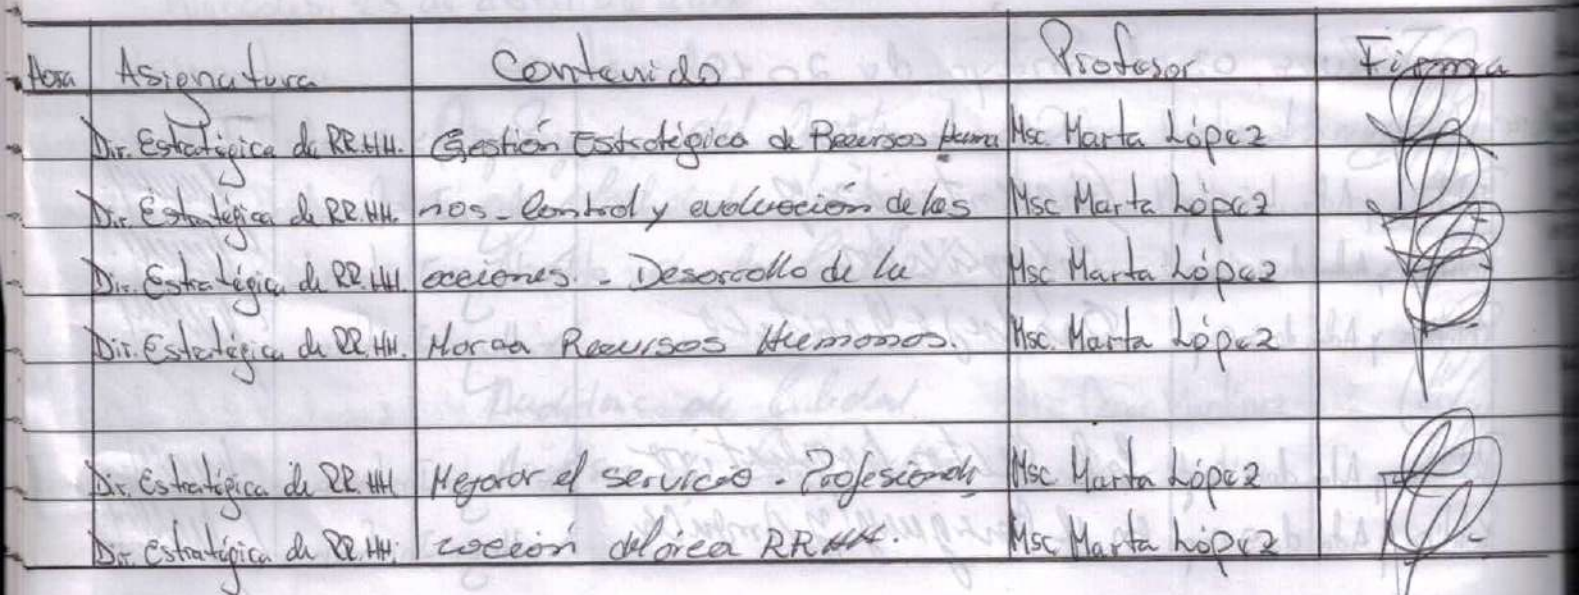 Hora Asignatura Contenido Profesor Firma
Dir. Estratégica de RR.HH. Gestión Estratégica de Recursos Huma Msc. Marta López
Dir. Estratégica de RR.HH. nos - Control y evaluación de las Msc Marta López
Dir. Estratégica de RR.HH. acciones. - Desarrollo de la Msc Marta López
Dir. Estratégica de RR.HH. Recursos Humanos. Msc. Marta López
Dir. Estratégica de RR.HH. Mejorar el servicio - Profesionali Msc Marta López
Dir. Estratégica de RR.HH. zación del área RRHH. Msc Marta López